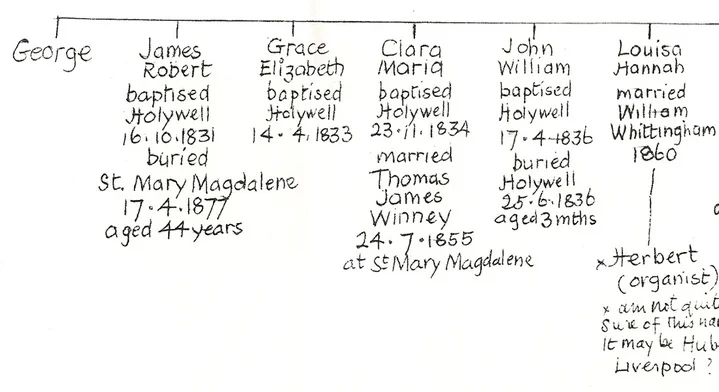 George
James
Robert
baptised
Holywell
16.10.1831
buried
St. Mary Magdalene
17.4.1877
aged 44 years
Grace
Elizabeth
baptised
Holywell
14.4.1833
Clara
Maria
baptised
Holywell
23.11.1834
married
Thomas
James
Winney
24.7.1855
at St Mary Magdalene
John
William
baptised
Holywell
17.4.1836
buried
Holywell
25.6.1836
aged 3 mths
Louisa
Hannah
married
William
Whittingham
1860
x Herbert
(organist)
x am not quit
Sure of this
It may be Hub
Liverpool ?